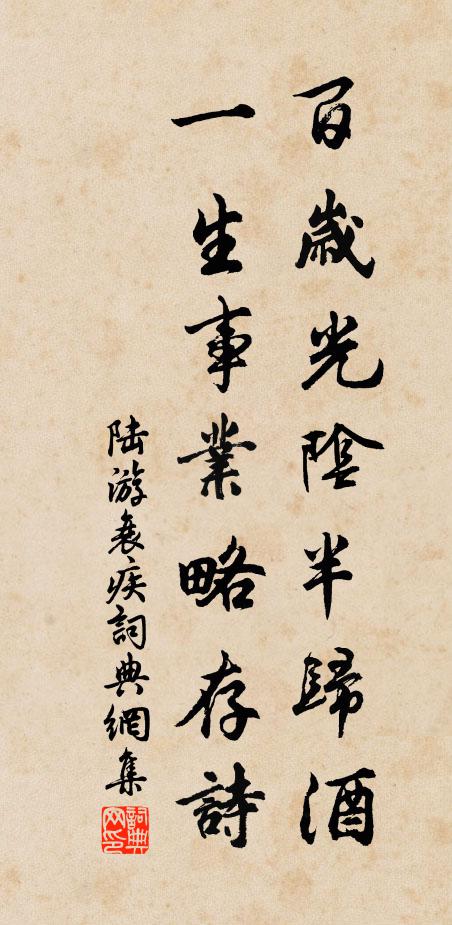 百歲光陰半歸酒
一生事業略存詩
陸游衰疾詞典網集
詞典網印